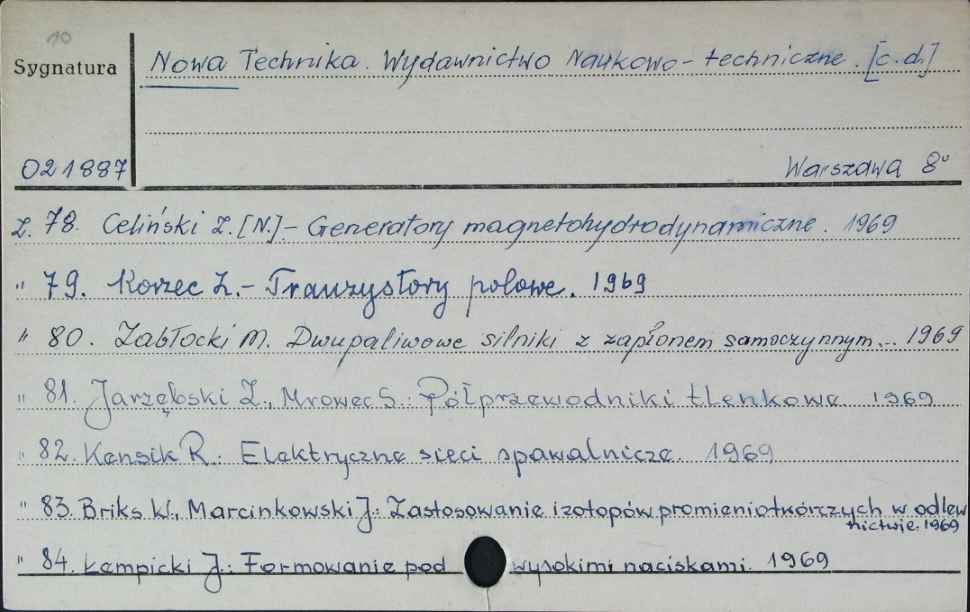 10
Sygnatura
Nowa Technika. Wydawnictwo Naukowo-techniczne. [c.d.]
021887
Warszawa 8°
Z. 78. Celiński Z. [N.] - Generatory magnetohydrodynamiczne. 1969
" 79. Korzec Z. - Tranzystory polowe. 1969
" 80. Zabłocki M. Dwupaliwowe silniki z zapłonem samoczynnym... 1969
" 81. Jarzębski Z., Mrowec S.: Półprzewodniki tlenkowe 1969
" 82. Kensik R.: Elektryczne sieci spawalnicze. 1969
" 83. Briks W., Marcinkowski J.: Zastosowanie izotopów promieniotwórczych w odlew
nictwie. 1969
" 84. Łempicki J.: Formowanie pod wysokimi naciskami. 1969